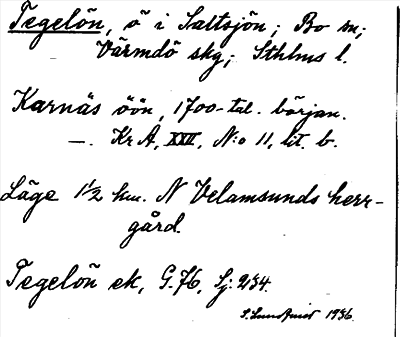 Tegelön, ö i Saltsjön; Bo sn;
Värmdö skg; Sthlms l.
Karnäs öön, 1700-tal. början.
—. Kr A, XXII, N:o 11, lit. b.
Läge 1 1/2 km. N Velamsunds herr-
gård.
Tegelön ek, G. 76, Sj: 234.
S. Lundquist 1936.